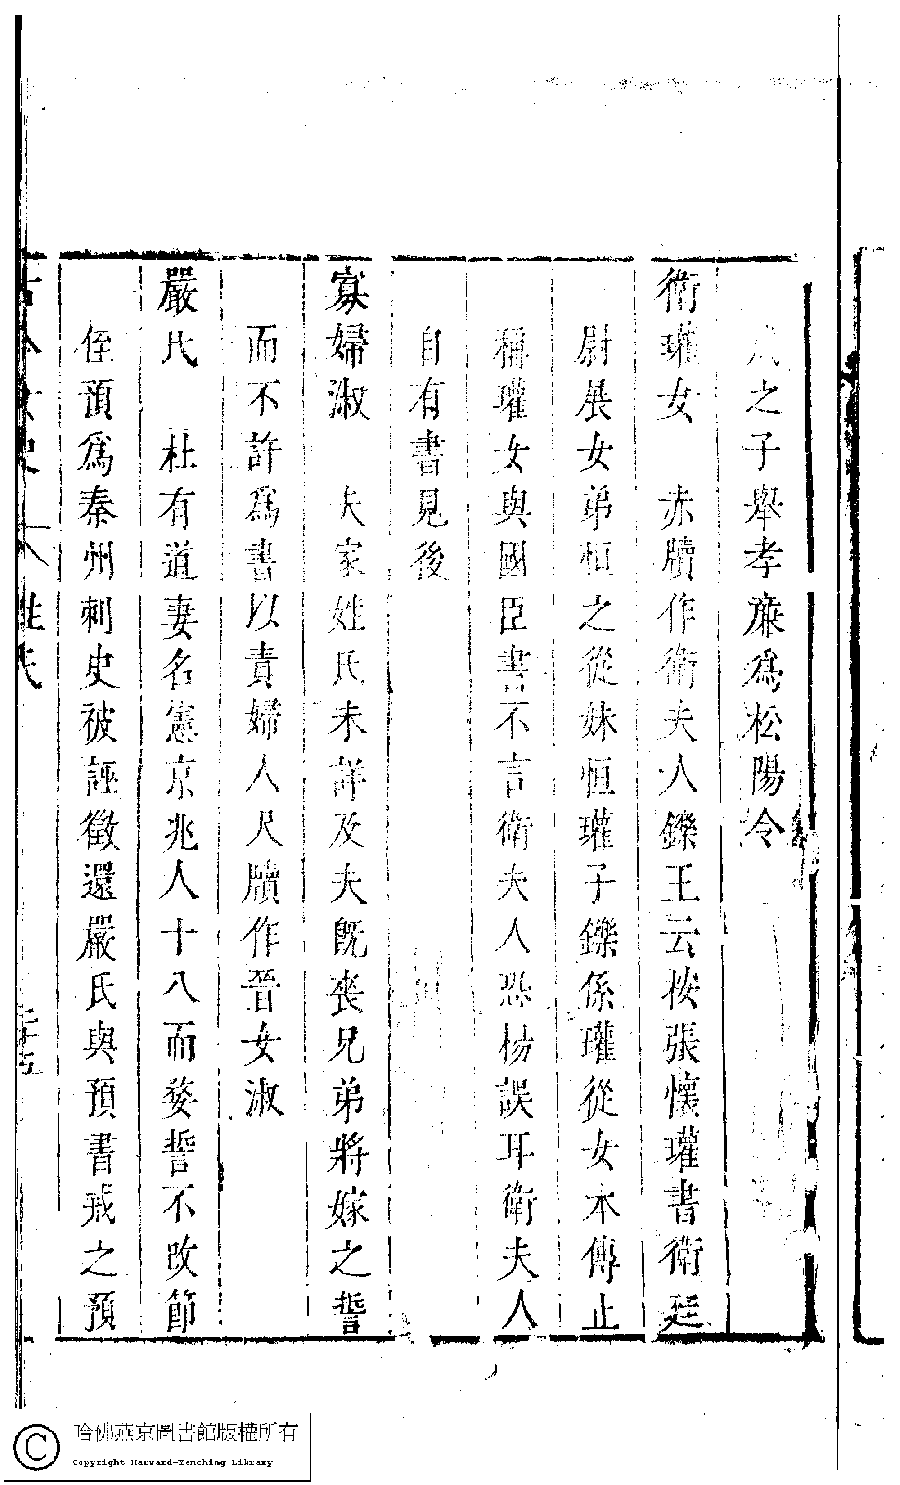 之子舉孝亷爲松陽令
衛瓘女　赤牘作衛夫人鑠王云按張懷瓘書衛廷
尉展女弟恒之從妹恒瓘子鑠係瓘從女本傳止
稱瓘女與國臣書不言衛夫人恐楊誤耳衛夫人
自有書見後
寡婦淑　夫家姓氏未詳及夫旣喪兄弟將嫁之誓
而不許爲書以責婦人尺牘作晉女淑
嚴氏　杜有道妻名憲京兆人十八而嫠誓不改節
侄預爲秦州刺史被誣徵還嚴氏與預書戒之預
姓氏
哈佛燕京圖書館版權所有
Copyright Harvard-Yenching Library